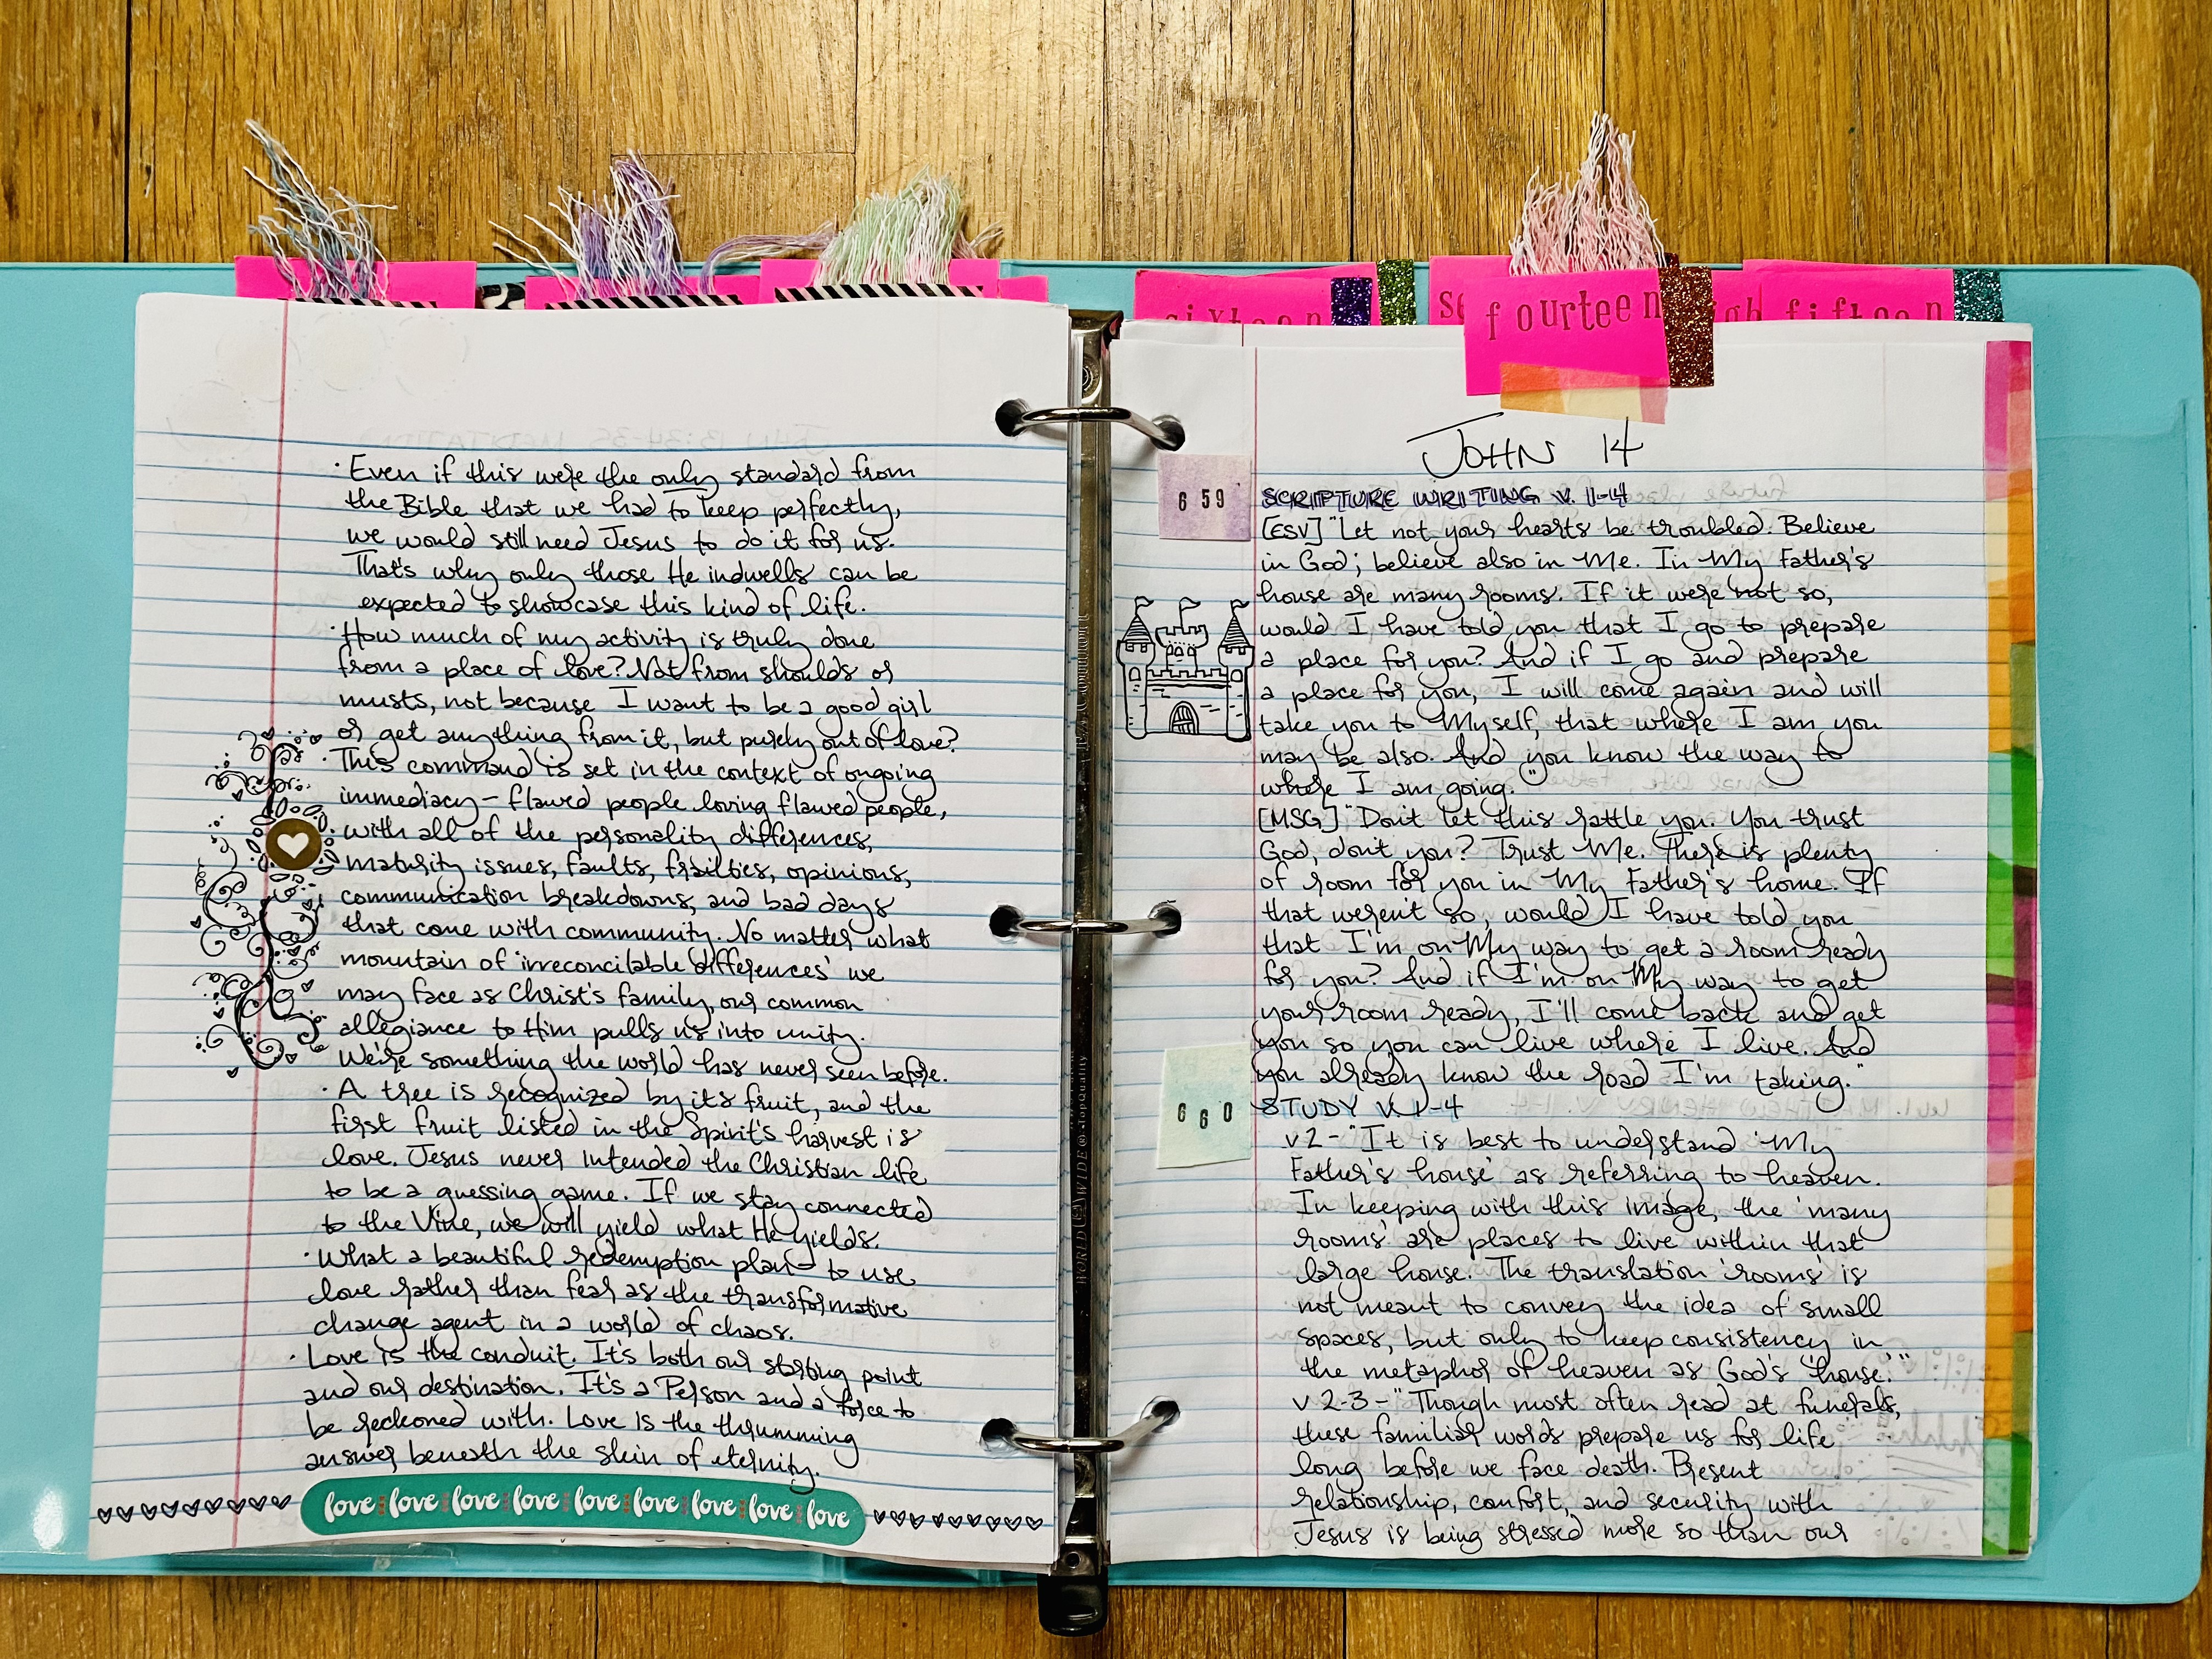 · Even if this were the only standard from
the Bible that we had to keep perfectly,
we would still need Jesus to do it for us.
That's why only those He indwells can be
expected to showcase this kind of life.
· How much of my activity is truly done
from a place of love? Not from shoulds or
musts, not because I want to be a good girl
or get anything from it, but purely out of love?
· This command is set in the context of ongoing
immediacy - flawed people loving flawed people,
with all of the personality differences,
maturity issues, faults, frailties, opinions,
communication breakdowns, and bad days
that come with community. No matter what
mountain of 'irreconcilable differences' we
may face as Christ's family, our common
allegiance to Him pulls us into unity.
We're something the world has never seen before.
· A tree is recognized by its fruit, and the
first fruit listed in the Spirit's harvest is
love. Jesus never intended the Christian life
to be a guessing game. If we stay connected
to the Vine, we will yield what He yields.
· What a beautiful redemption plan - to use
love rather than fear as the transformative
change agent in a world of chaos.
· Love is the conduit. It's both our starting point
and our destination. It's a Person and a force to
be reckoned with. Love is the thrumming
answer beneath the skin of eternity.
love love love love love love love love love
WORLDWIDE TopQuality
sixteen
fourteen
fifteen
JOHN 14
659
SCRIPTURE WRITING V. 1-4
[ESV] "Let not your hearts be troubled. Believe
in God; believe also in Me. In My Father's
house are many rooms. If it were not so,
would I have told you that I go to prepare
a place for you? And if I go and prepare
a place for you, I will come again and will
take you to Myself, that where I am you
may be also. And you know the way to
where I am going."
[MSG] "Don't let this rattle you. You trust
God, don't you? Trust Me. There is plenty
of room for you in My Father's home. If
that weren't so, would I have told you
that I'm on My way to get a room ready
for you? And if I'm on My way to get
your room ready, I'll come back and get
you so you can live where I live. And
you already know the road I'm taking."
660
STUDY V. 1-4
v 2 - "It is best to understand 'My
Father's house' as referring to heaven.
In keeping with this image, the 'many
rooms' are places to live within that
large house. The translation 'rooms' is
not meant to convey the idea of small
spaces, but only to keep consistency in
the metaphor of heaven as God's 'house.'"
v 2-3 - "Though most often read at funerals,
these familiar words prepare us for life
long before we face death. Present
relationship, comfort, and security with
Jesus is being stressed more so than our